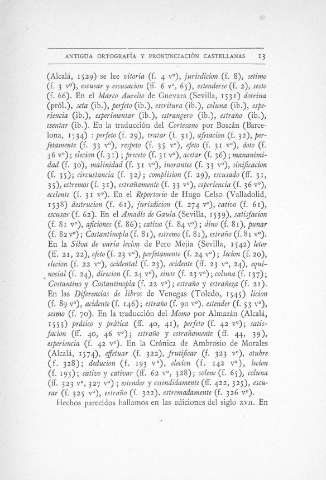 ANTIGUA ORTOGRAFÍA Y PRONUNCIACIÓN CASTELLANAS 13
(Alcalá, 1529) se lee vitoria (f. 4 vº), jurisdicion (f. 8), setimo
(f. 3 vº), escusar y escusacion (ff. 6 vº, 65), estenderse (f. 2), sesto
(f. 66). En el Marco Aurelio de Guevara (Sevilla, 1531) dotrina
(pról.), seta (ib.), perfeto (ib.), escritura (ib.), coluna (ib.), espe-
riencia (ib.), esperimentar (ib.), estrangero (ib.), estraño (ib.),
esentar (ib.). En la traducción del Cortesano por Boscán (Barce-
lona, 1534) : perfeto (f. 29), tratar (f. 31), afetacion (f. 32), per-
fetamente (f. 33 vº), respeto (f. 35 vº), efeto (f. 31 vº), doto (f.
36 vº); elecion (f. 31); preceto (f. 31 vº), acetar (f. 36); mananimi-
dad (f. 30), malinidad (f. 31 vº), inorantes (f. 33 vº), sinificacion
(f. 35); circustancia (f. 32); complision (f. 29), escusado (ff. 31,
35), estremos (f. 31), estrañamente (f. 33 vº), esperiencia (f. 36 vº),
ecelente (f. 31 vº). En el Repertorio de Hugo Celso (Valladolid,
1538) destrucion (f. 61), jurisdicion (f. 274 vº), cativo (f. 61),
escusar (f. 62). En el Amadís de Gaula (Sevilla, 1539), satisfacion
(f. 81 vº), aficiones (f. 86); cativo (f. 84 vº); dino (f. 81), punar
(f. 82 vº); Costantinopla (f. 81), estremo (f. 81), estraño (f. 81 vº).
En la Silva de varia lecion de Pero Mejía (Sevilla, 1542) letor
(ff. 21, 22), efeto (f. 23 vº), perfetamente (f. 24 vº); lecion (f. 20),
elecion (f. 22 vº), acidental (f. 23), acidente (ff. 23 vº, 24),
(f. 24), dirucion (f. 24 vº), sinto (f. 23 vº); coluna (f. 137);
Costantino y Costantinopla (f. 22 vº); estraño y estrañeza (f. 21).
En las Diferencias de libros de Venegas (Toledo, 1545) licion
(f. 89 vº), acidente (f. 146); estraño (f. 90 vº), estender (f. 53 vº),
sesmo (f. 70). En la traducción del Momo por Almazán (Alcalá,
1553) prático y prática (ff. 40, 41), perfeto (f. 42 vº); satis-
facion (ff. 40, 46 vº); estraño y estrañamente (ff. 44, 39),
esperiencia (f. 42 vº). En la Crónica de Ambrosio de Morales
(Alcalá, 1574), effetuar (f. 322), frutificar (f. 323 vº), otubre
(f. 328); dedución (f. 193 vº), elecion (f. 142 vº), lecion
(f. 195); cativo y cativar (ff. 62 vº, 328); solene (f. 65), coluna
(ff. 323 vº, 327 vº); esconder y escondidamente (ff. 422, 325), escu-
sar (f. 325 vº), estraño (f. 322), estremadamente (f. 326 vº).
Hechos parecidos hallamos en las ediciones del siglo XVII. En